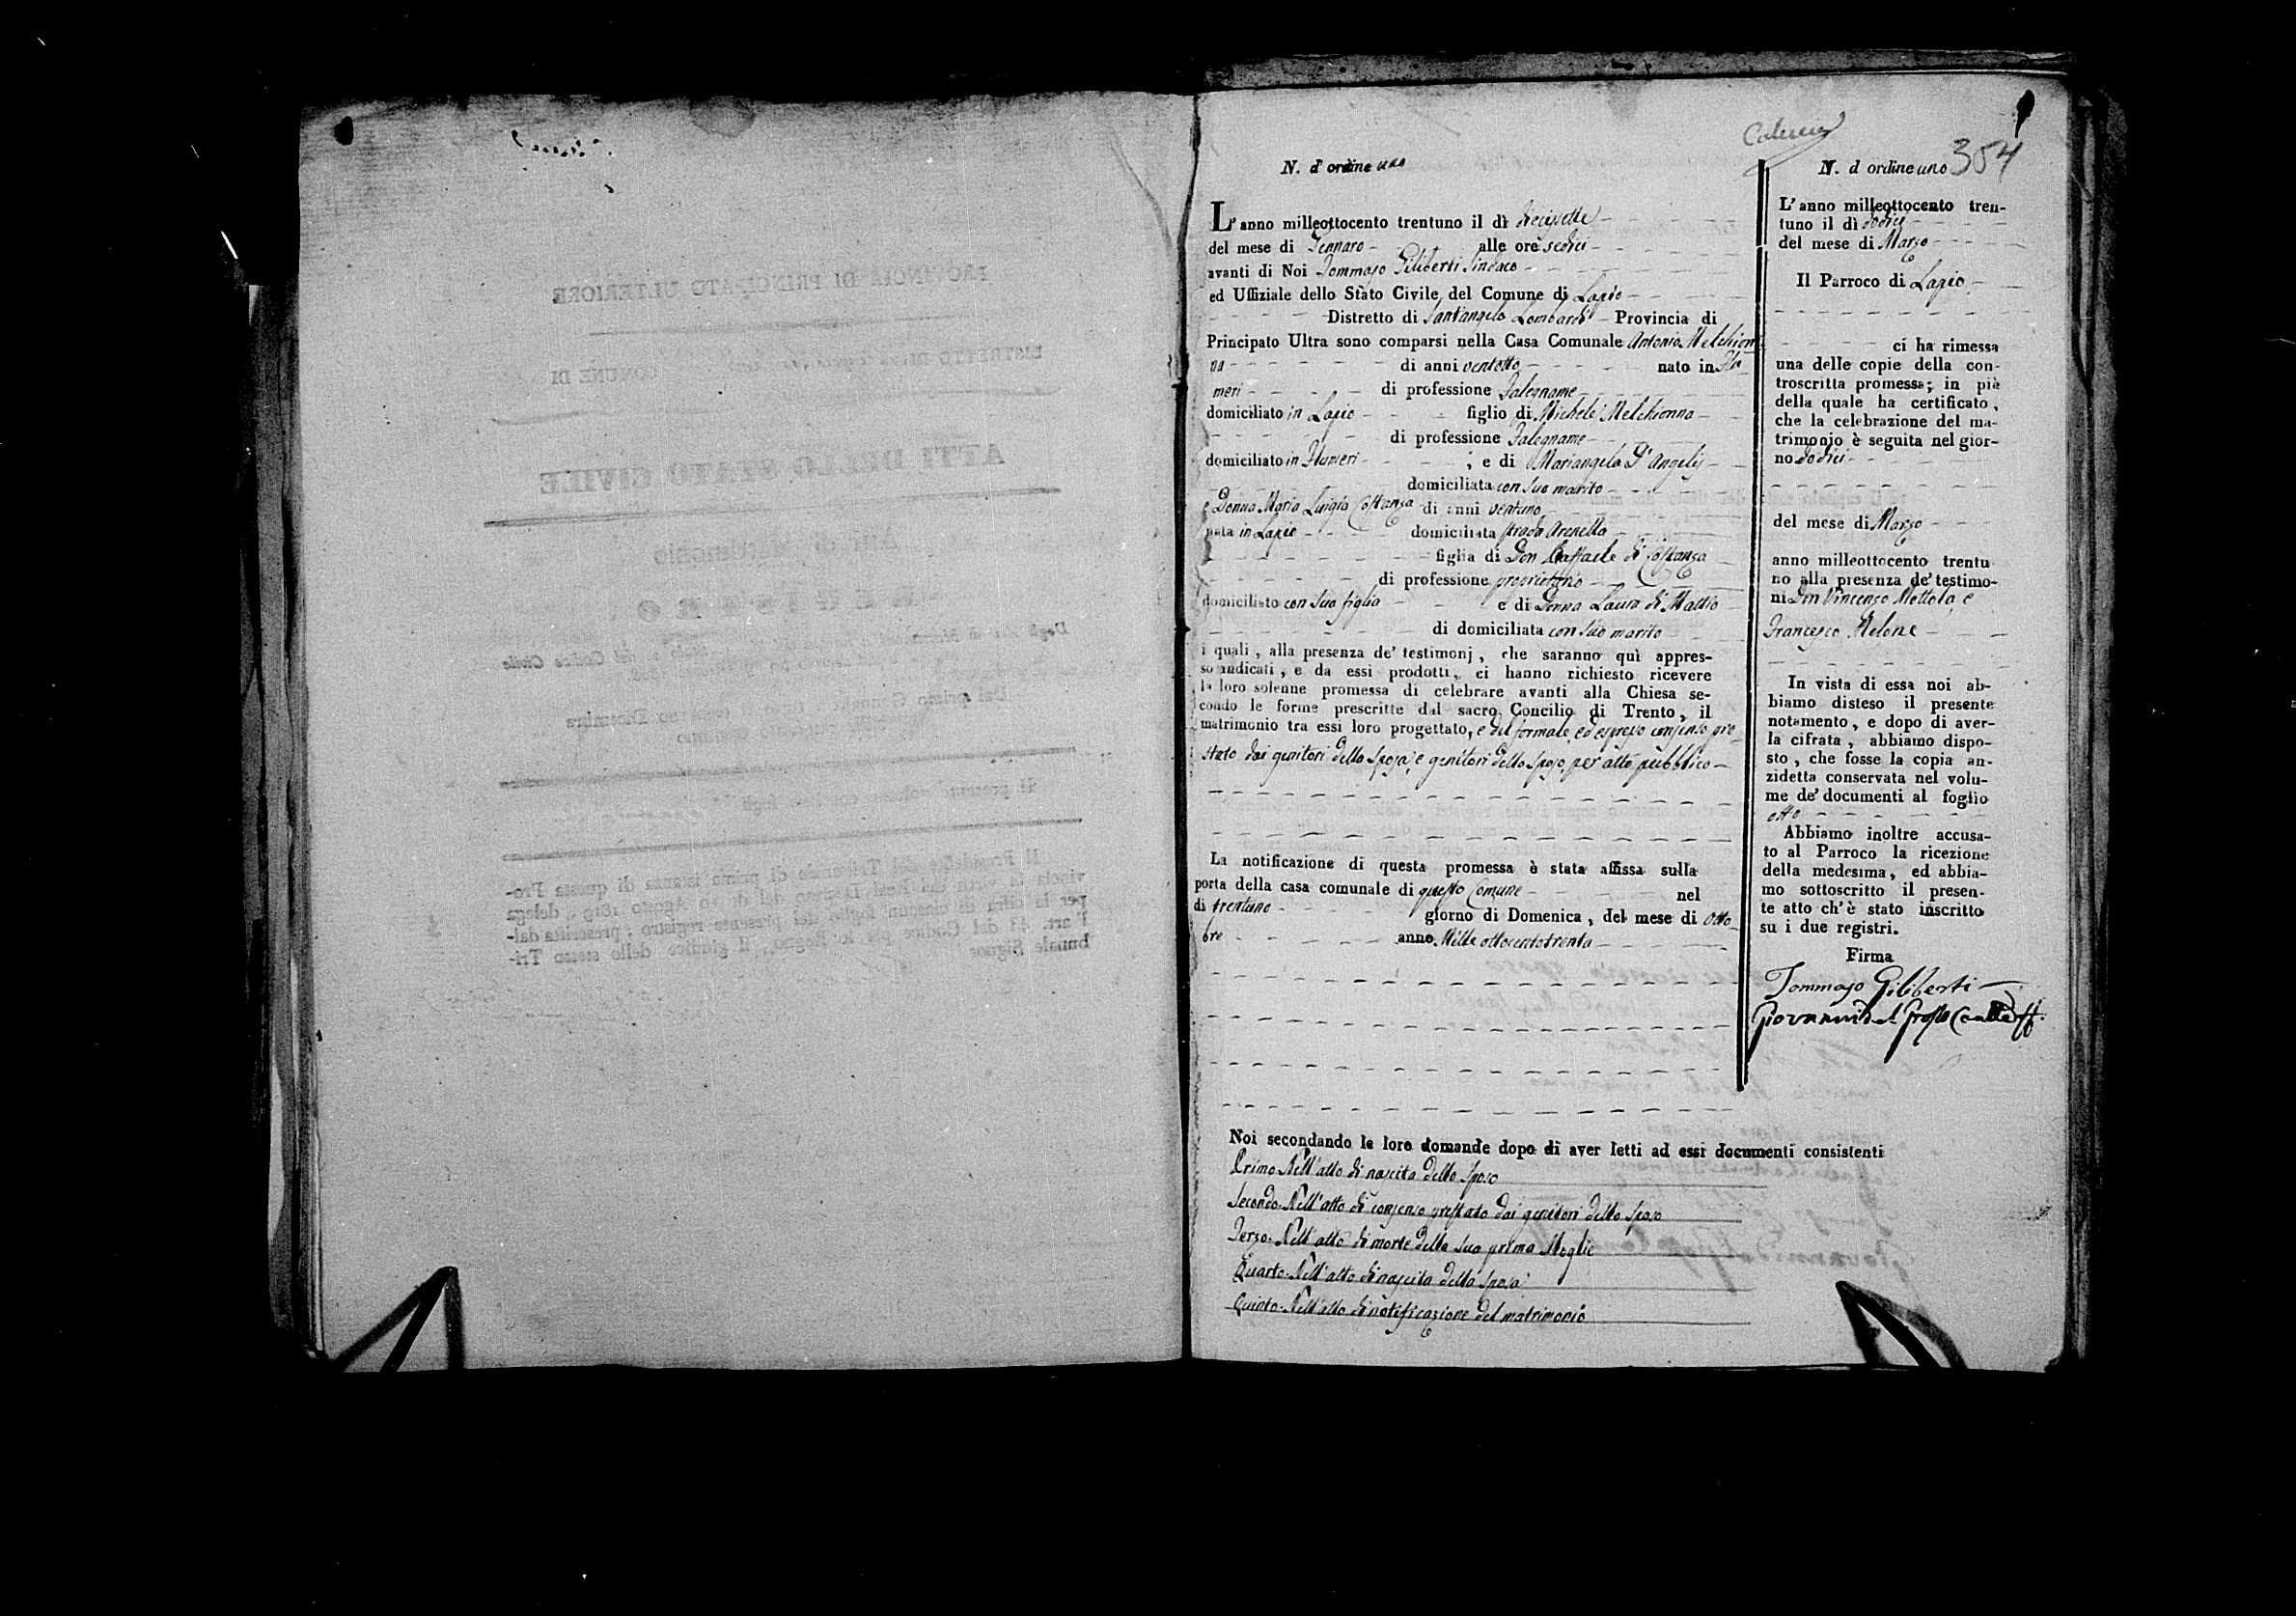 N. d'ordine uno
L'anno milleottocento trentuno il dì diecisette
del mese di Gennaro alle ore sedici
avanti di Noi Tommaso Giliberti Sindaco
ed Uffiziale dello Stato Civile del Comune di Lapio
Distretto di Sant'angelo Lombardi Provincia di
Principato Ultra sono comparsi nella Casa Comunale Antonio Melchion
na di anni ventotto nato in Flu
meri di professione Falegname
domiciliato in Lapio figlio di Michele Melchionna
di professione Falegname
domiciliato in Flumeri ; e di Mariangela D'Angelis
domiciliata con suo marito
e Donna Maria Luigia Costanza di anni ventuno
nata in Lapio domiciliata strada Arenella
figlia di Don Raffaele di Costanza
di professione proprietario
domiciliato con sua figlia e di Donna Laura di Mattio
di domiciliata con suo marito
i quali, alla presenza de' testimonj, che saranno quì appres-
so indicati, e da essi prodotti, ci hanno richiesto ricevere
la loro solenne promessa di celebrare avanti alla Chiesa se-
condo le forme prescritte dal sacro Concilio di Trento, il
matrimonio tra essi loro progettato, e del formale, ed espresso consenso pre
stato dai genitori della sposa, e genitori dello sposo per atto pubblico
La notificazione di questa promessa è stata affissa sulla
porta della casa comunale di questo Comune nel
di trentuno giorno di Domenica, del mese di Otto
bre anno Mille ottocentotrenta
Noi secondando le loro domande dopo di aver letti ad essi documenti consistenti
Primo Nell'atto di nascita dello sposo
Secondo. Nell'atto di consenso prestato dai genitori dello sposo
Terzo. Nell'atto di morte della sua prima Moglie
Quarto. Nell'atto di nascita della sposa
Quinto. Nell'atto di notificazione del matrimonio
354
N. d'ordine uno
L'anno milleottocento tren-
tuno il dì dodici
del mese di Marzo
Il Parroco di Lapio
ci ha rimessa
una delle copie della con-
troscritta promessa; in piè
della quale ha certificato,
che la celebrazione del ma-
trimonio è seguita nel gior-
no dodici
del mese di Marzo
anno milleottocento trentu
no alla presenza de' testimo-
ni Don Vincenzo Mottola, e
Francesco Melone
In vista di essa noi ab-
biamo disteso il presente
notamento, e dopo di aver-
la cifrata, abbiamo dispo-
sto, che fosse la copia an-
zidetta conservata nel volu-
me de' documenti al foglio
otto
Abbiamo inoltre accusa-
to al Parroco la ricezione
della medesima, ed abbia-
mo sottoscritto il presen-
te atto ch'è stato inscritto
su i due registri.
Firma
Tommaso Giliberti
Giovanni del